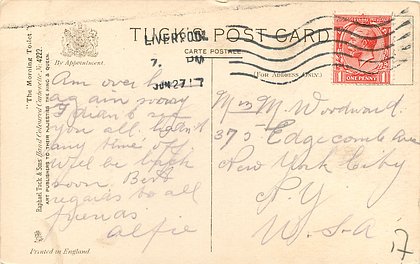 TUCK'S POST CARD
CARTE POSTALE
By Appointment.
(FOR ADDRESS ONLY.)
LIVERPOOL
7. PM
JUN 27 17
ONE PENNY
"The Morning Toilet"
Raphael Tuck & Sons Hand Coloured Cartonette No 4222.
ART PUBLISHERS TO THEIR MAJESTIES THE KING & QUEEN.
Am over here
again sorry
I didn't see
you all, hadn't
any time off
will be back
soon. Best
regards to all
friends
Alfie
Mrs M. Woodward.
375 Edgecomb Ave
New York City
N.Y
U.S.A
17
Printed in England.